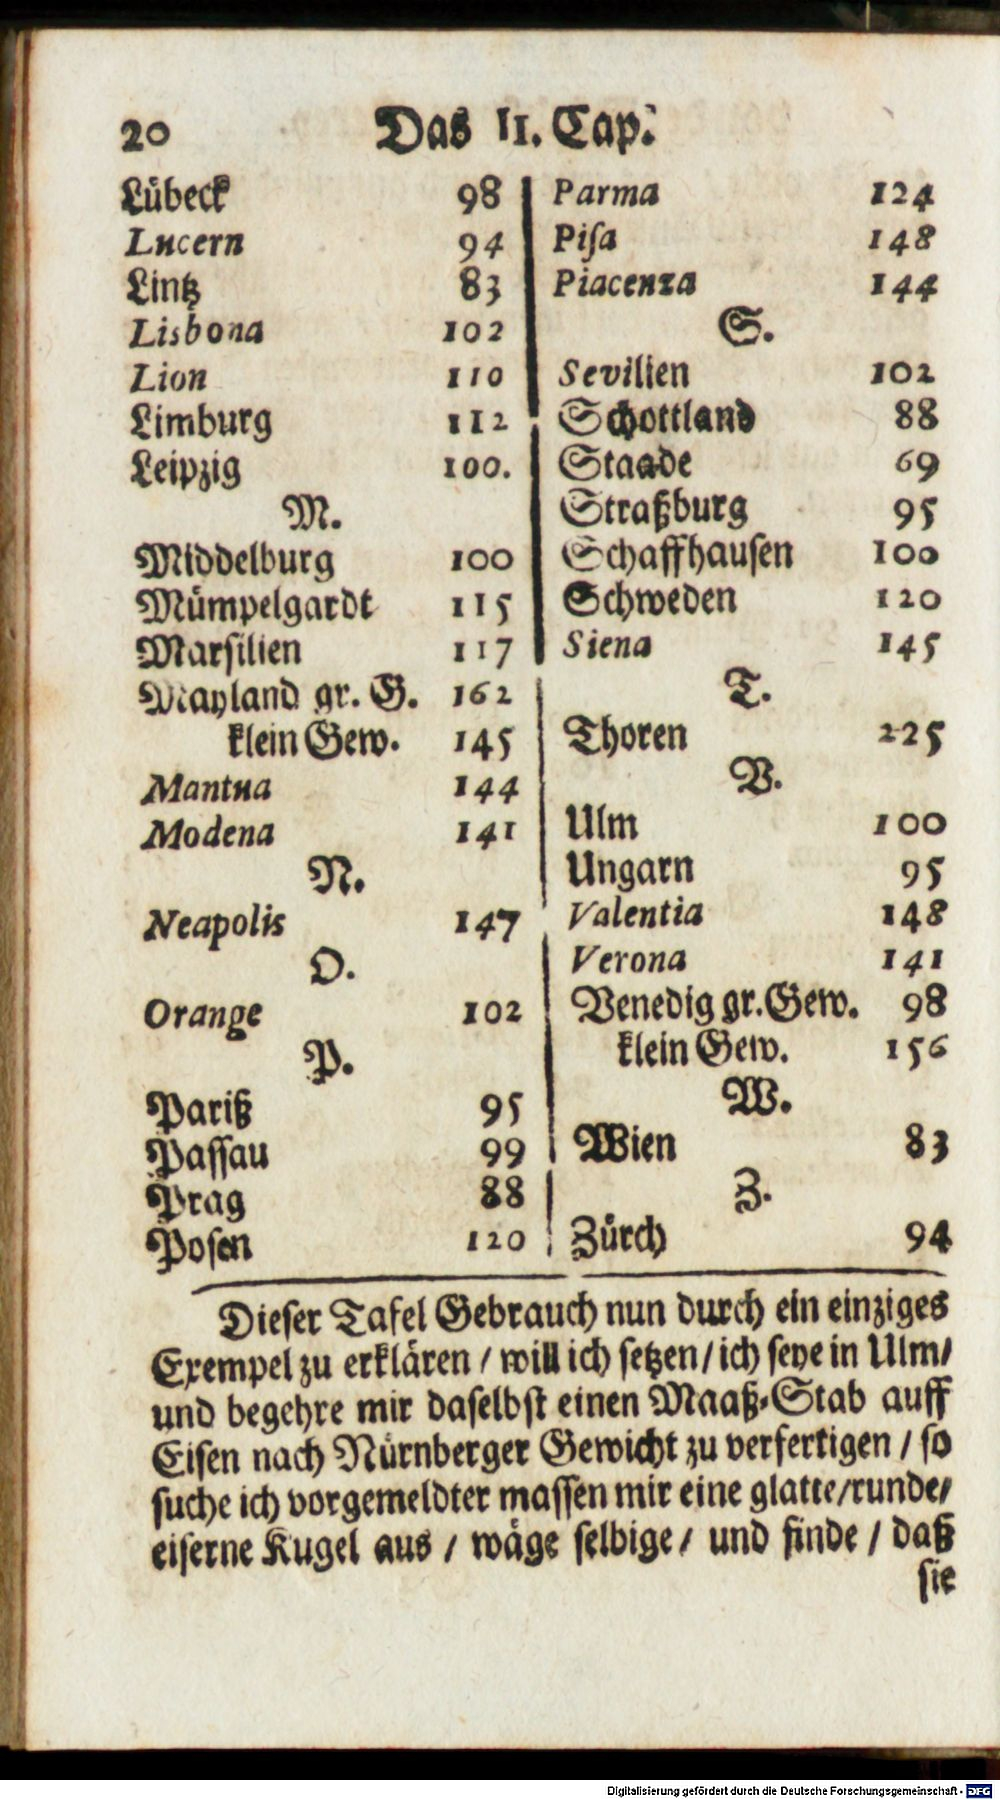 20 Das II. Cap.
Lübeck 98
Lucern 94
Lintz 83
Lisbona 102
Lion 110
Limburg 112
Leipzig 100.
M.
Middelburg 100
Mümpelgardt 115
Marsilien 117
Mayland gr. G. 162
klein Gew. 145
Mantua 144
Modena 141
N.
Neapolis 147
O.
Orange 102
P.
Pariß 95
Passau 99
Prag 88
Posen 120
Parma 124
Piſa 148
Piacenza 144
S.
Sevilien 102
Schottland 88
Staade 69
Straßburg 95
Schaffhauſen 100
Schweden 120
Siena 145
T.
Thoren 225
V.
Ulm 100
Ungarn 95
Valentia 148
Verona 141
Venedig gr. Gew. 98
klein Gew. 156
W.
Wien 83
Z.
Zürch 94
Dieſer Tafel Gebrauch nun durch ein einziges
Exempel zu erklären / will ich ſetzen / ich ſeye in Ulm /
und begehre mir daſelbſt einen Maaß-Stab auff
Eiſen nach Nürnberger Gewicht zu verfertigen / ſo
ſuche ich vorgemeldter maſſen mir eine glatte / runde /
eiſerne Kugel aus / wäge ſelbige / und finde / daß
ſie
Digitalisierung gefördert durch die Deutsche Forschungsgemeinschaft - DFG